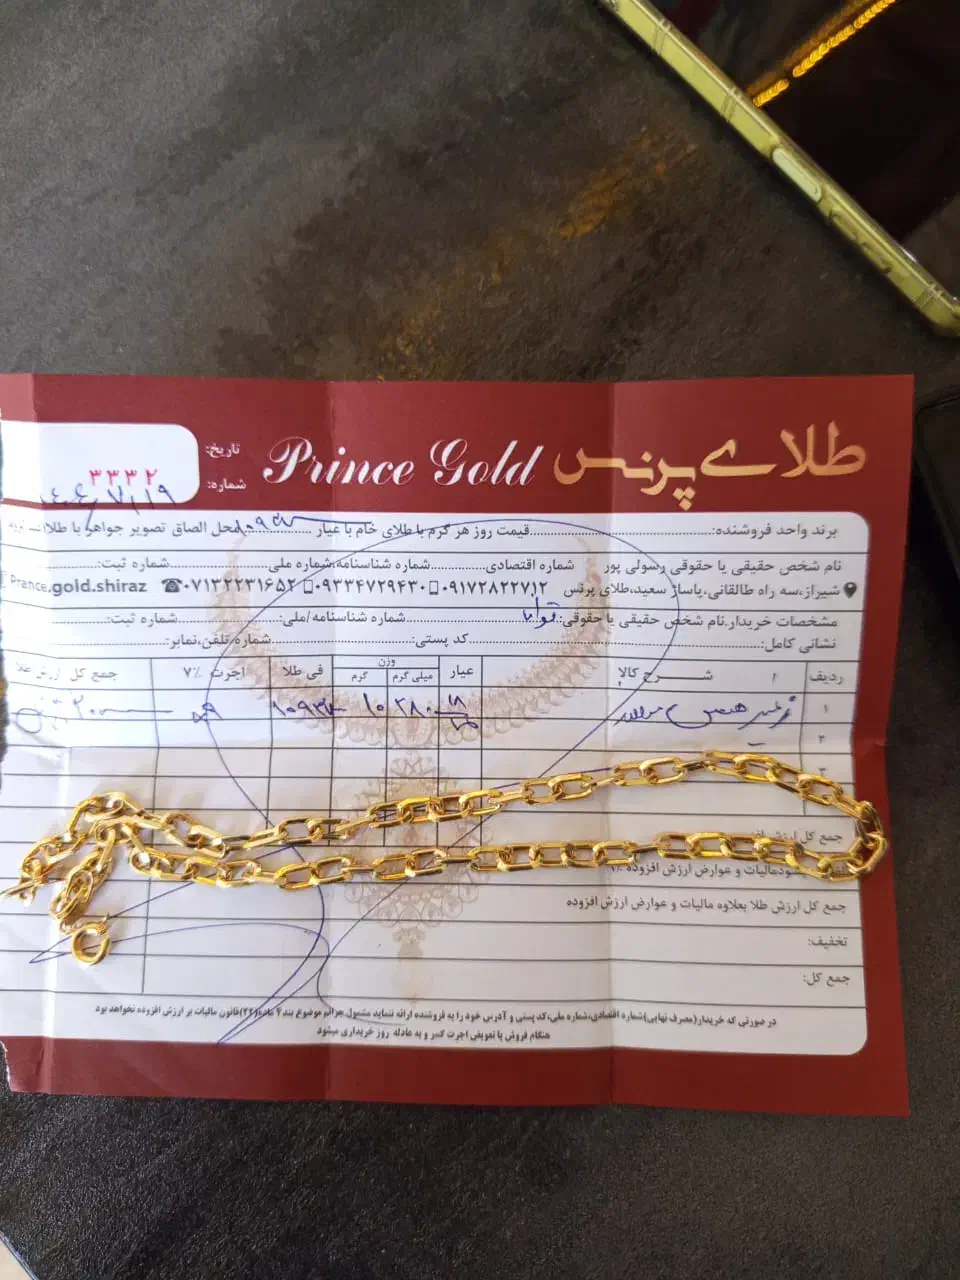 طلاے پرنس Prince Gold
تاریخ:
شماره: ۳۳۳۲
برند واحد فروشنده:..........قیمت روز هر گرم با طلای خام با عیار ..........محل الصاق تصویر جواهر با طلا
نام شخص حقیقی یا حقوقی رسولی پور شماره اقتصادی..........شماره شناسنامه/شماره ملی..........شماره ثبت:
شیراز،سه راه طالقانی،پاساژ سعید،طلای پرنس ۰۹۱۷۲۸۲۲۷۱۲ ۰۹۳۳۴۷۲۹۴۳۰ ۰۷۱۳۲۲۳۱۶۵۲ Prance.gold.shiraz
مشخصات خریدار.نام شخص حقیقی یا حقوقی:..........شماره شناسنامه/ملی:..........شماره ثبت:
نشانی کامل:..........کد پستی:..........شماره تلفن،نمابر:
ردیف شــــرح کالا عیار وزن میلی گرم گرم فی طلا اجرت ۷٪ جمع کل ارزش طلا
۱ ۲۸۰ ۱۰
۲
۳
جمع کل ارزش
مالیات و عوارض ارزش افزوده
جمع کل ارزش طلا بعلاوه مالیات و عوارض ارزش افزوده
تخفیف:
جمع کل:
در صورتی که خریدار(مصرف نهایی)شماره اقتصادی،شماره ملی،کد پستی و آدرس خود را به فروشنده ارائه ننماید مشمول جرائم موضوع بند۷ ماده(۲۲)قانون مالیات بر ارزش افزوده نخواهد بود
هنگام فروش یا تعویض اجرت کسر و به عادله روز خریداری میشود